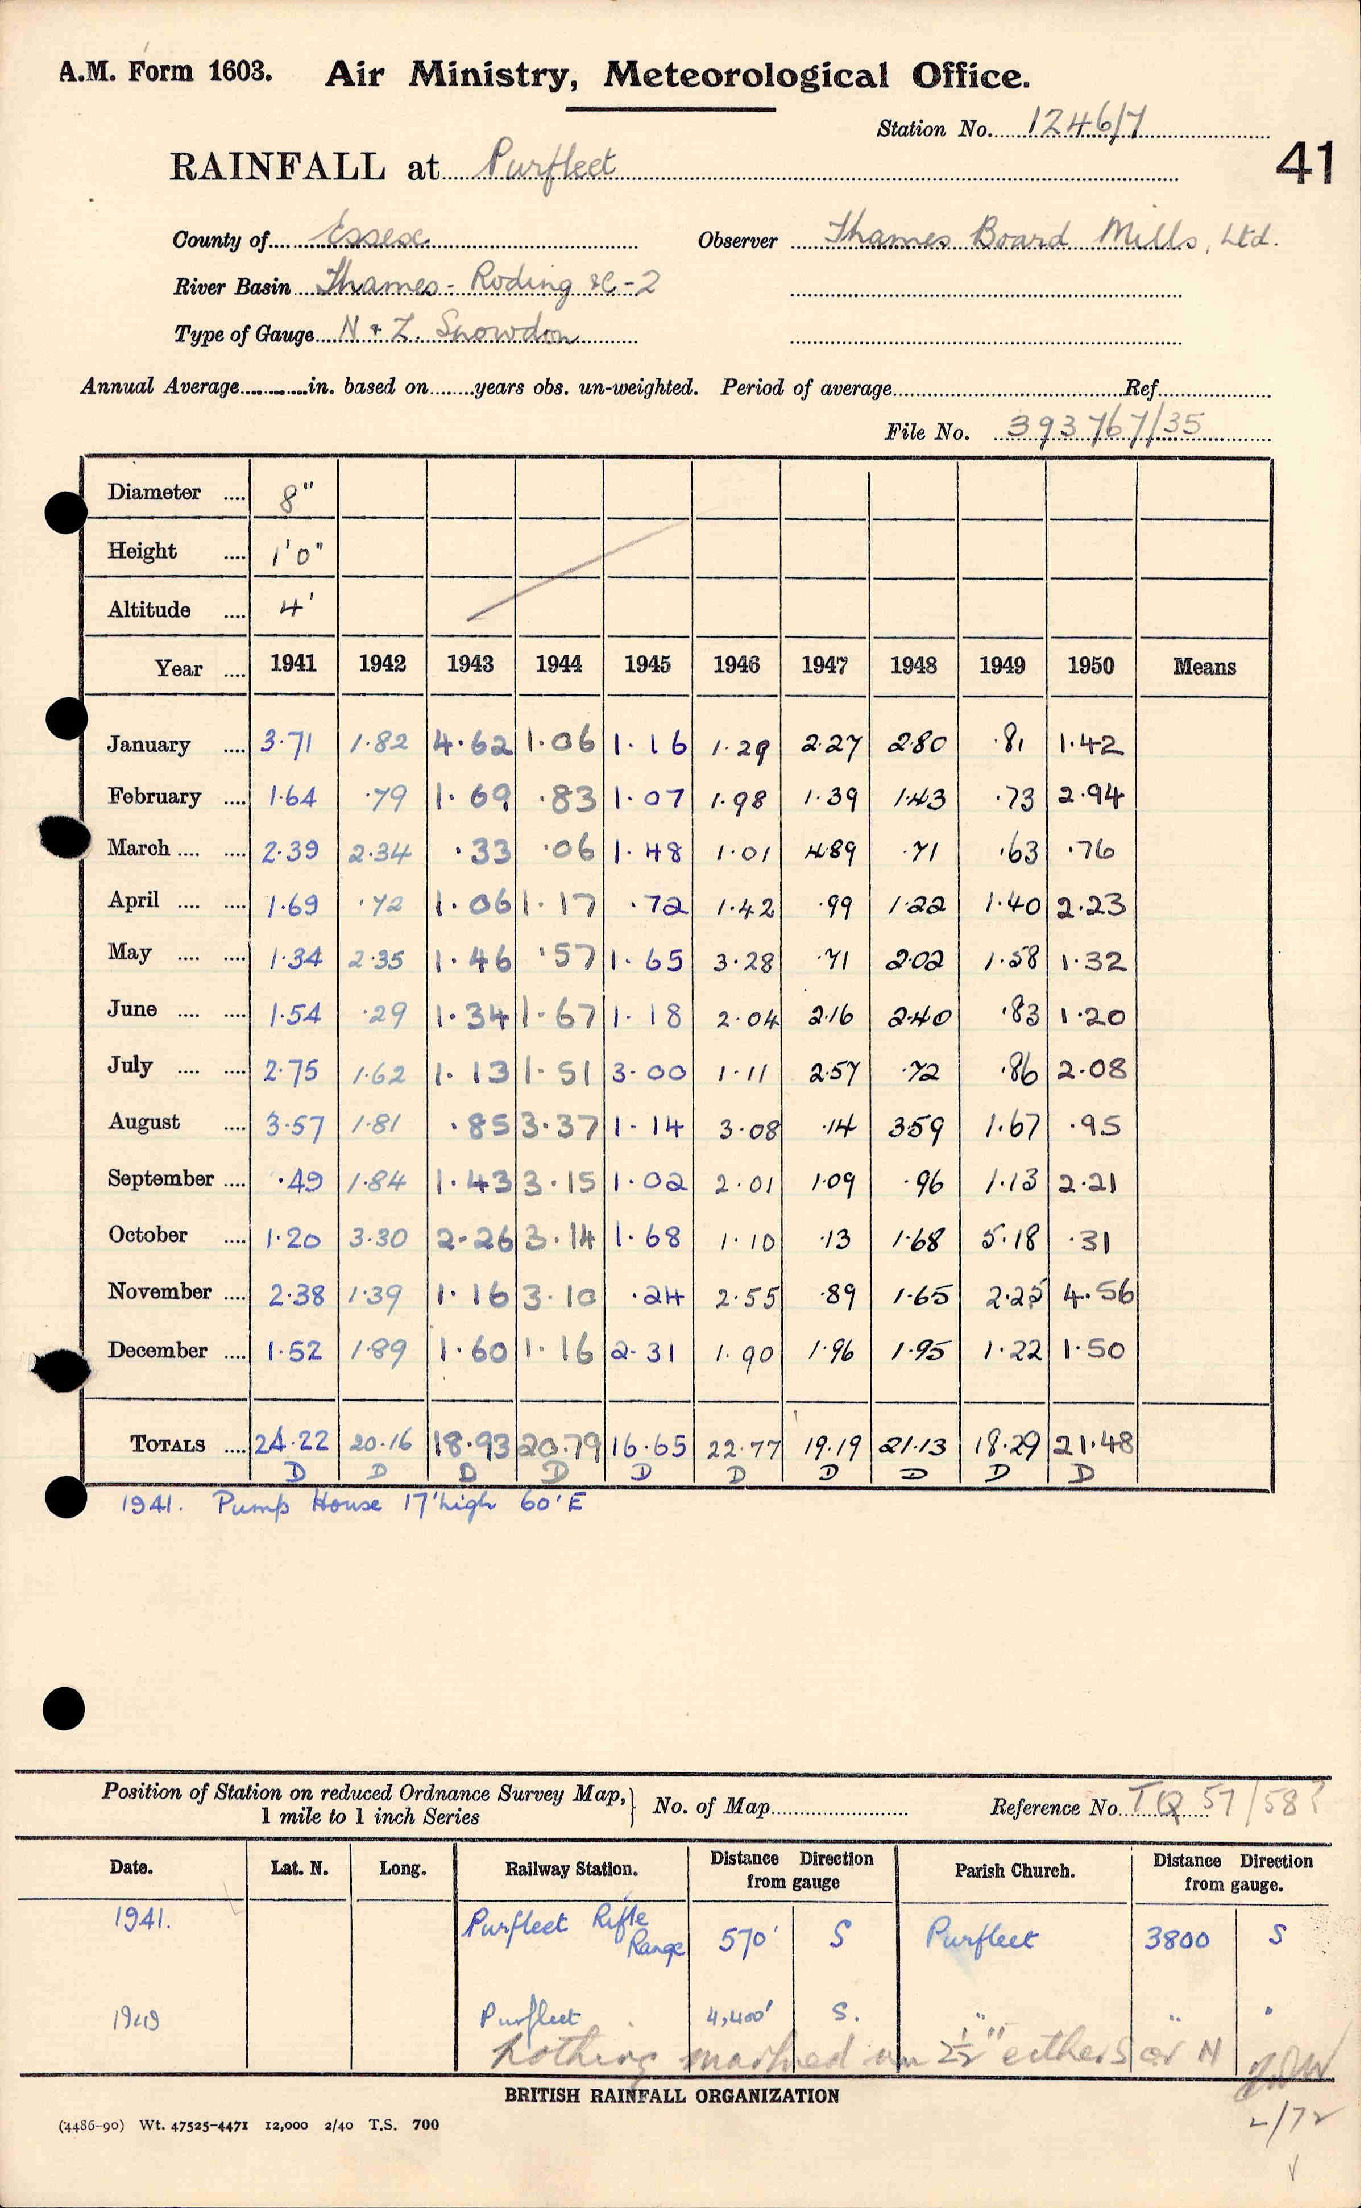 A.M. Form 1603. Air Ministry, Meteorological Office.
Station No. 1246/7
41
RAINFALL at Purfleet
County of Essex Observer Thames Board Mills, Ltd.
River Basin Thames - Roding &c - 2
Type of Gauge N & Z. Snowdon
Annual Average in. based on years obs. un-weighted. Period of average Ref
File No. 393767/35
Diameter .... 8"
Height .... 1'0"
Altitude .... 4'
Year .... 1941 1942 1943 1944 1945 1946 1947 1948 1949 1950 Means
January .... 3.71 1.82 4.62 1.06 1.16 1.29 2.27 2.80 .81 1.42
February .... 1.64 .79 1.69 .83 1.07 1.98 1.39 1.43 .73 2.94
March .... .... 2.39 2.34 .33 .06 1.48 1.01 4.89 .71 .63 .76
April .... .... 1.69 .72 1.06 1.17 .72 1.42 .99 1.22 1.40 2.23
May .... .... 1.34 2.35 1.46 .57 1.65 3.28 .71 2.02 1.58 1.32
June .... .... 1.54 .29 1.34 1.67 1.18 2.04 2.16 2.40 .83 1.20
July .... .... 2.75 1.62 1.13 1.51 3.00 1.11 2.57 .72 .86 2.08
August .... 3.57 1.81 .85 3.37 1.14 3.08 .14 3.59 1.67 .95
September .... .49 1.84 1.43 3.15 1.02 2.01 1.09 .96 1.13 2.21
October .... 1.20 3.30 2.26 3.14 1.68 1.10 .13 1.68 5.18 .31
November .... 2.38 1.39 1.16 3.10 .24 2.55 .89 1.65 2.25 4.56
December .... 1.52 1.89 1.60 1.16 2.31 1.90 1.96 1.95 1.22 1.50
TOTALS .... 24.22 20.16 18.93 20.79 16.65 22.77 19.19 21.13 18.29 21.48
D D D D D D D D D D
1941. Pump House 17' high 60' E
Position of Station on reduced Ordnance Survey Map, 1 mile to 1 inch Series No. of Map Reference No. TQ 57/58?
Date. Lat. N. Long. Railway Station. Distance Direction from gauge Parish Church. Distance Direction from gauge.
1941. Purfleet Rifle Range 570' S Purfleet 3800 S
1949 Purfleet 4,400' S. " " "
Nothing marked on 2½" either S or N
2/72
BRITISH RAINFALL ORGANIZATION
(4486-90) Wt. 47525-4471 12,000 2/40 T.S. 700